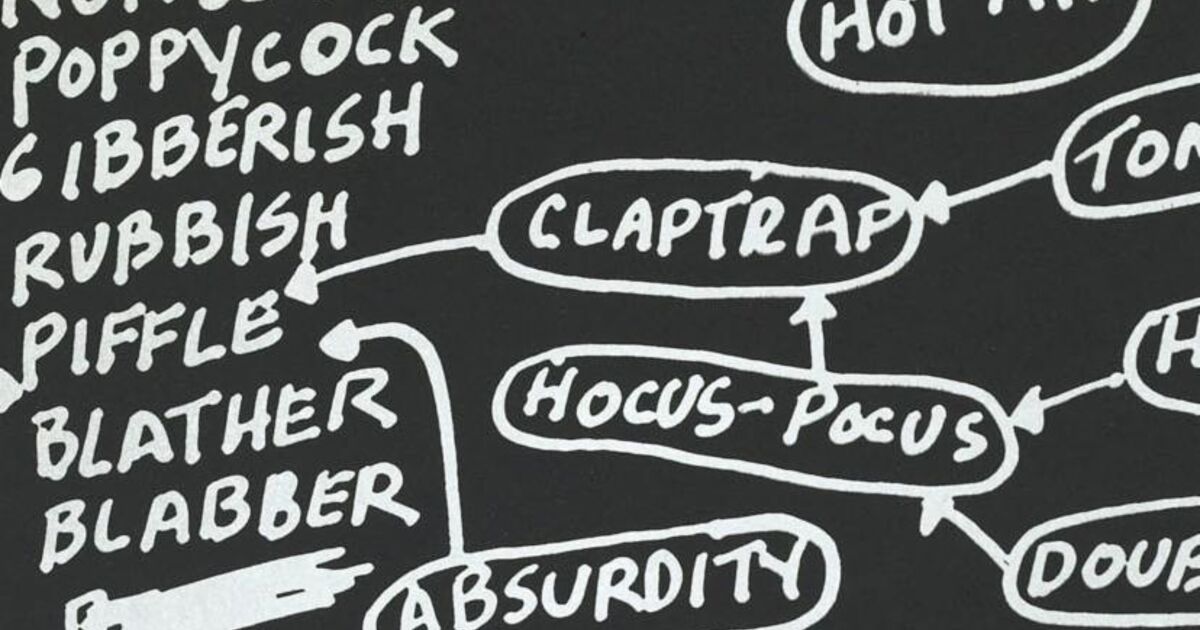 POPPYCOCK
GIBBERISH
RUBBISH
PIFFLE
BLATHER
BLABBER
HOT AIR
CLAPTRAP
HOCUS-POCUS
ABSURDITY